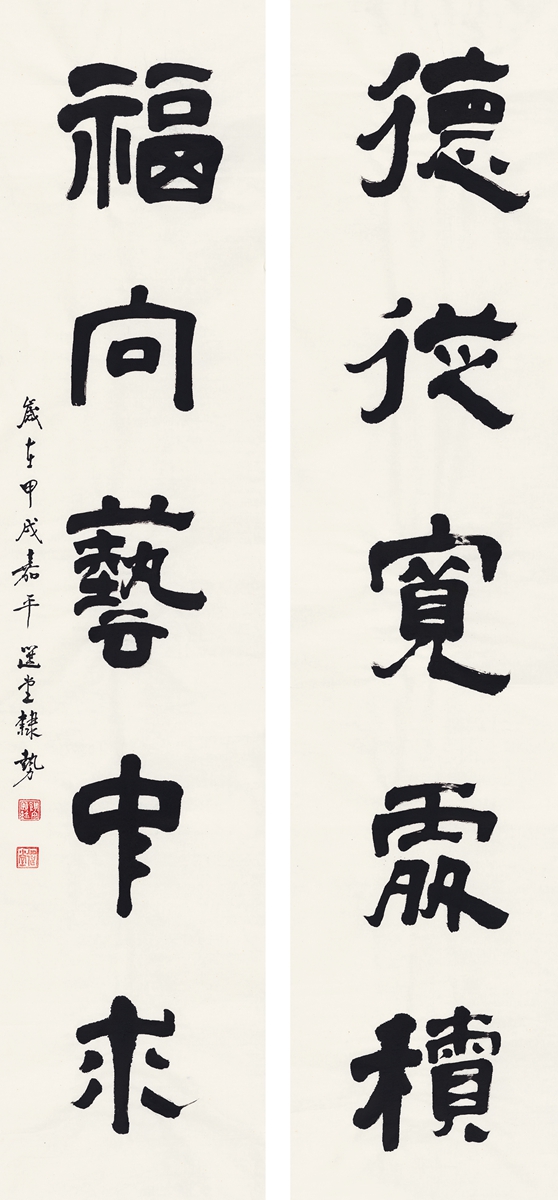 德從寬處積
福向藝中求
歲在甲戌嘉平選堂隸勢